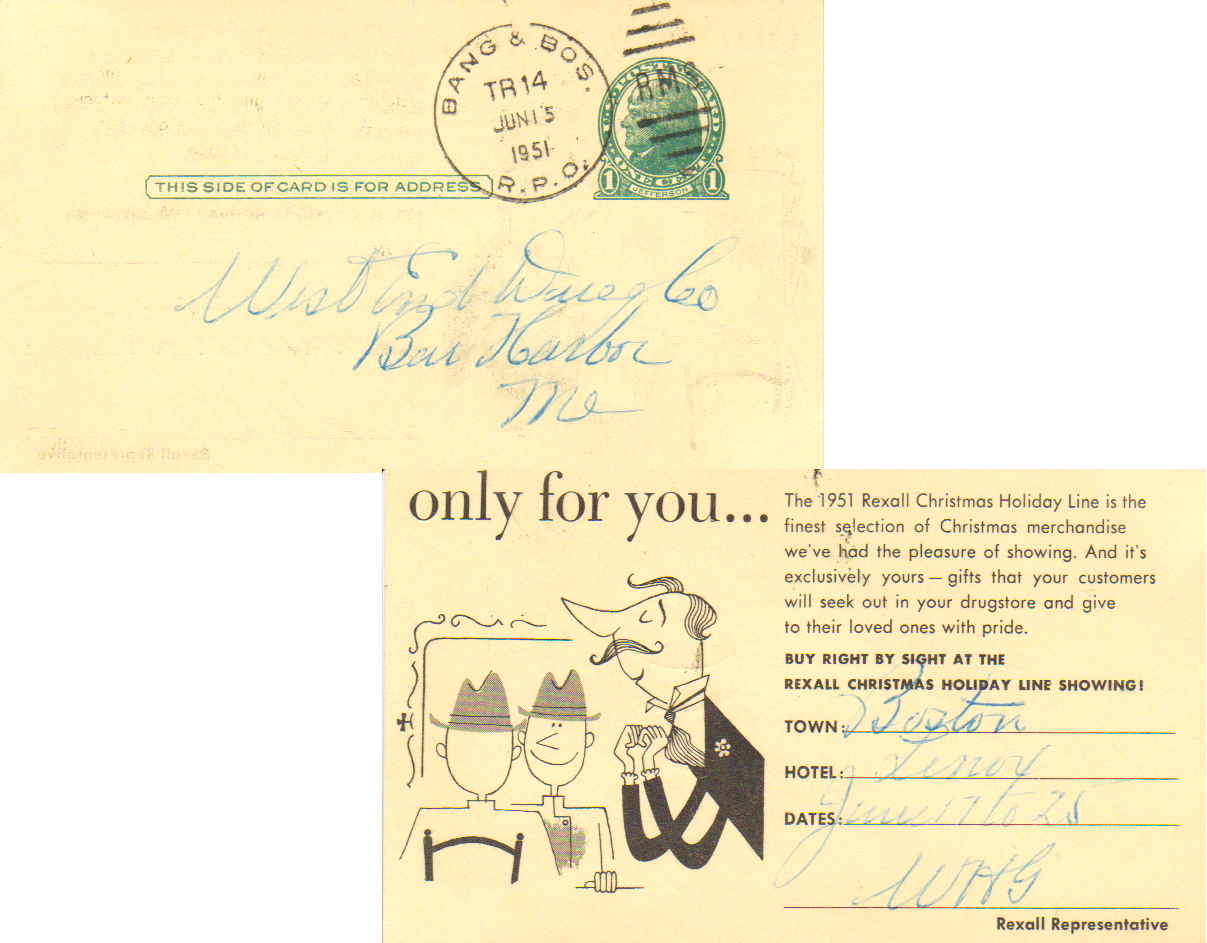 BANG & BOS.
TR14
JUN 15
1951
R.P.O.
RMS
U.S. POSTAL CARD
1 ONE CENT 1
JEFFERSON
THIS SIDE OF CARD IS FOR ADDRESS
West End Drug Co
Bar Harbor
Me
Rexall Representative
only for you...
The 1951 Rexall Christmas Holiday Line is the
finest selection of Christmas merchandise
we've had the pleasure of showing. And it's
exclusively yours — gifts that your customers
will seek out in your drugstore and give
to their loved ones with pride.
BUY RIGHT BY SIGHT AT THE
REXALL CHRISTMAS HOLIDAY LINE SHOWING!
TOWN: Boston
HOTEL: Lenox
DATES: June 17 to 25
WHG
Rexall Representative